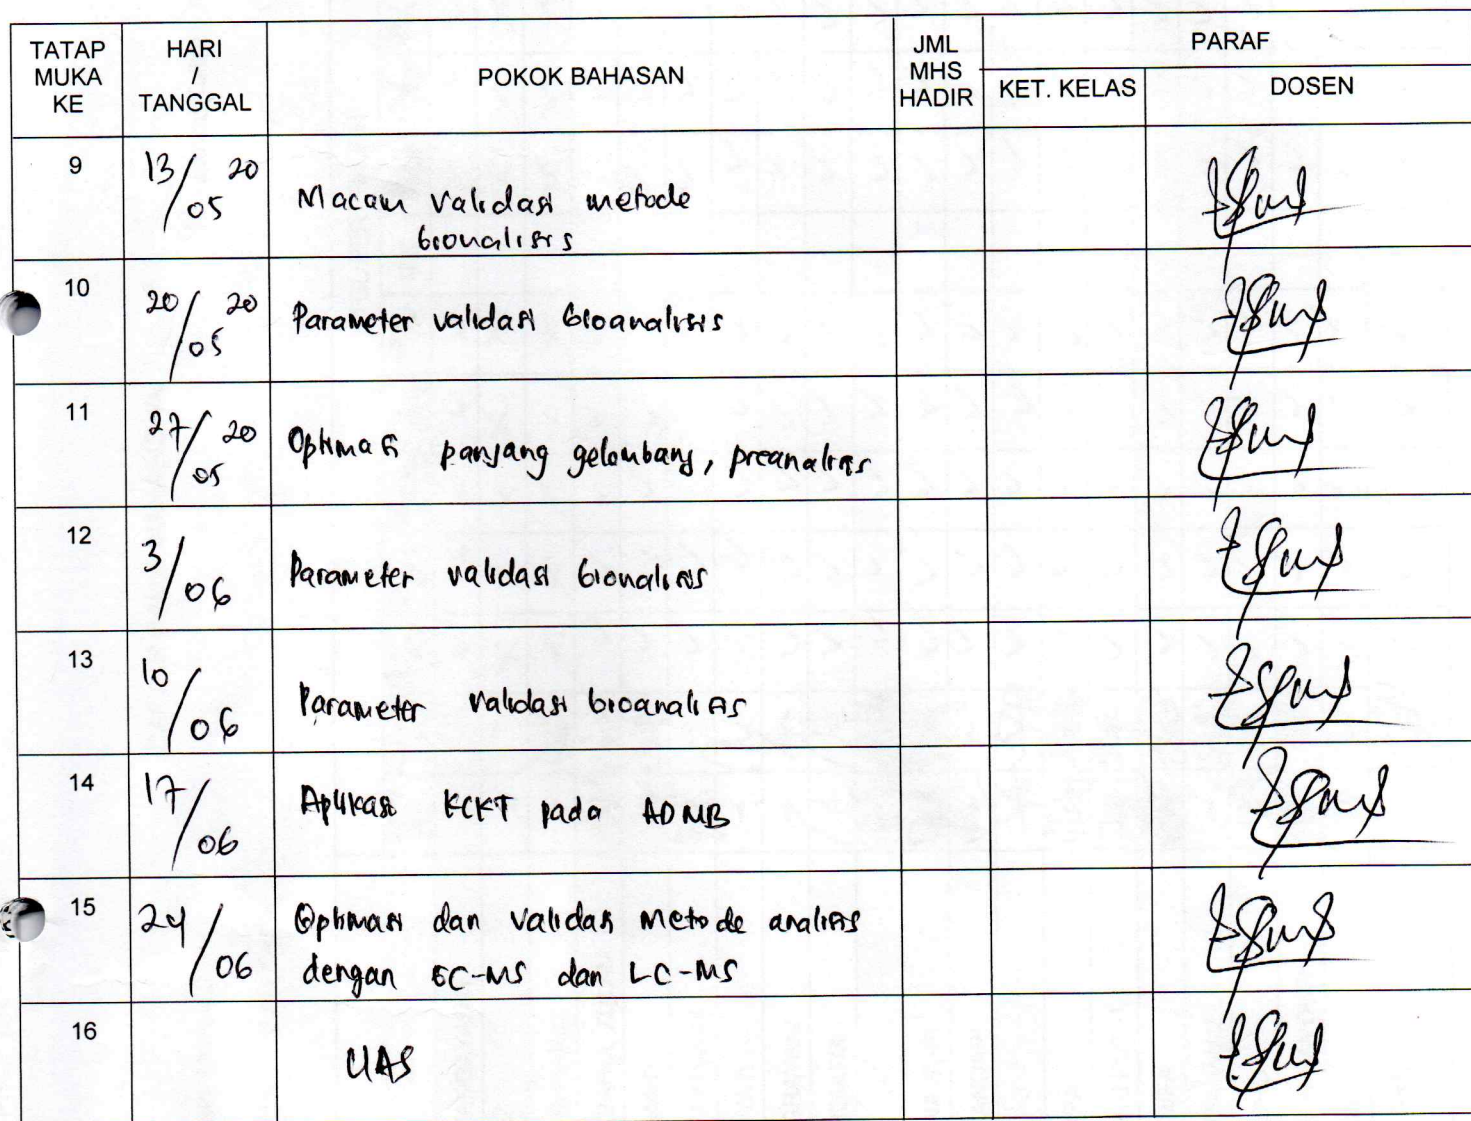 TATAP MUKA KE
HARI / TANGGAL
POKOK BAHASAN
JML MHS HADIR
PARAF
KET. KELAS
DOSEN
9 13/05 20 Macam validasi metode
bionalisis
10 20/05 20 Parameter validasi bioanalisis
11 27/05 20 Optimasi panjang gelombang, preanalisis
12 3/06 Parameter validasi bionalisis
13 10/06 Parameter validasi bioanalisis
14 17/06 Aplikasi KCKT pada ADMB
15 24/06 Optimasi dan validasi metode analisis
dengan GC-MS dan LC-MS
16 UAS